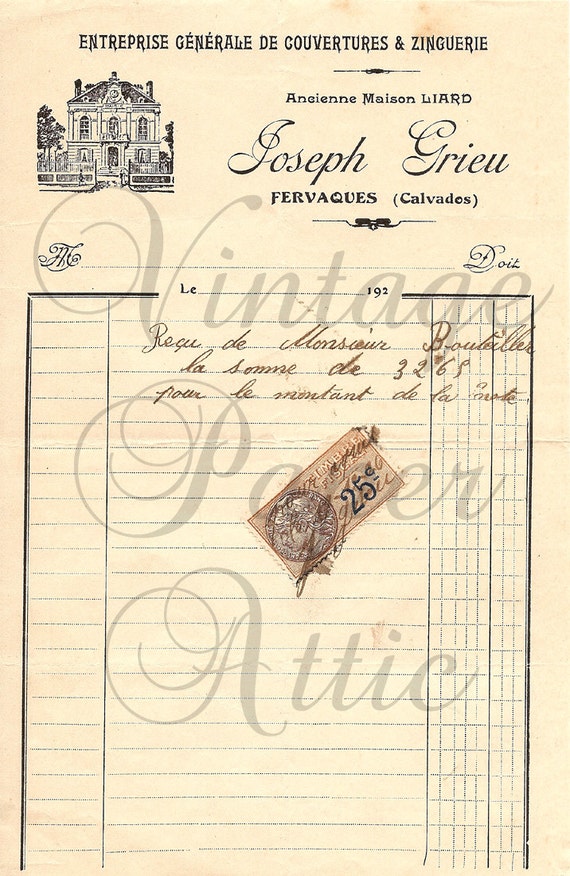 ENTREPRISE GÉNÉRALE DE COUVERTURES & ZINGUERIE
Ancienne Maison LIARD
Joseph Grieu
FERVAQUES (Calvados)
M
Doit
Le 192
Reçu de Monsieur Bouteiller
la somme de 326 5
pour le montant de la note
25c
Vintage
Paper
Attic